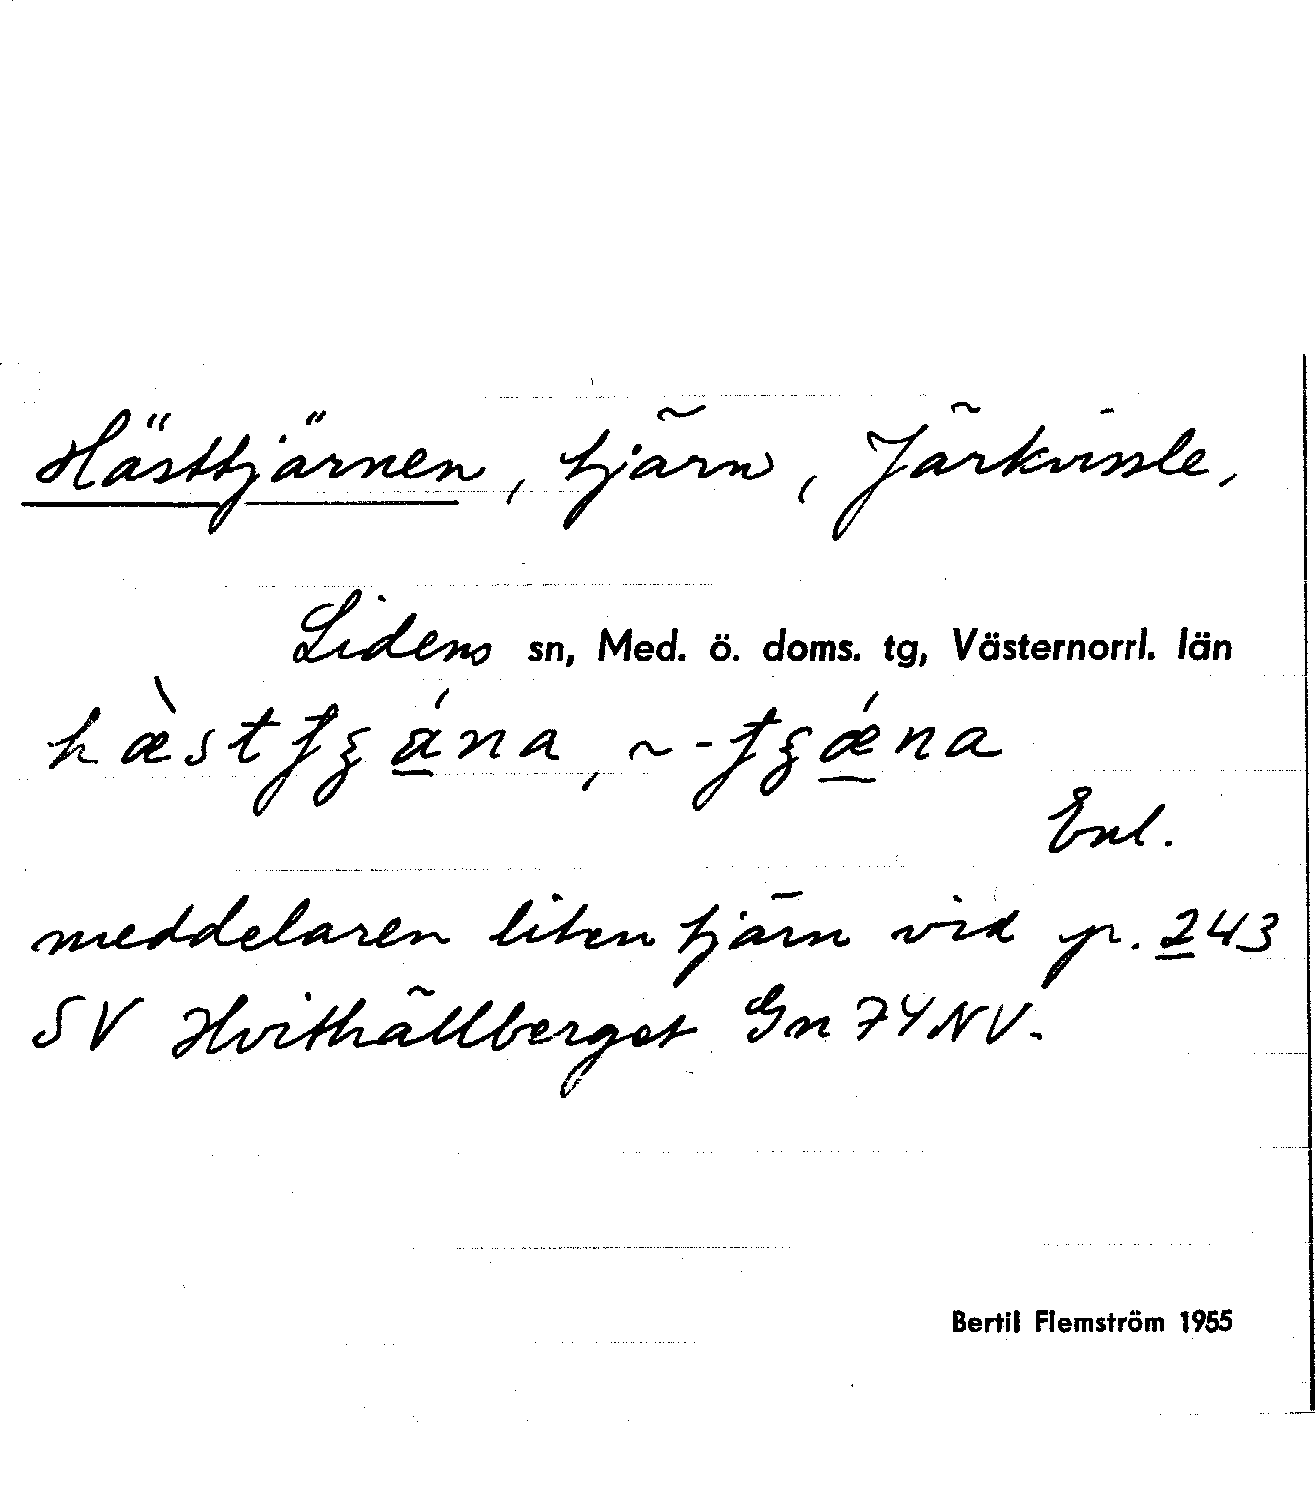 Hästtjärnen, tjärn, Järkvissle,
Lidens sn, Med. ö. doms. tg, Västernorrl. län
Enl.
meddelaren liten tjärn vid p. 243
SV Hvithällberget Gn 74 NV.
Bertil Flemström 1955